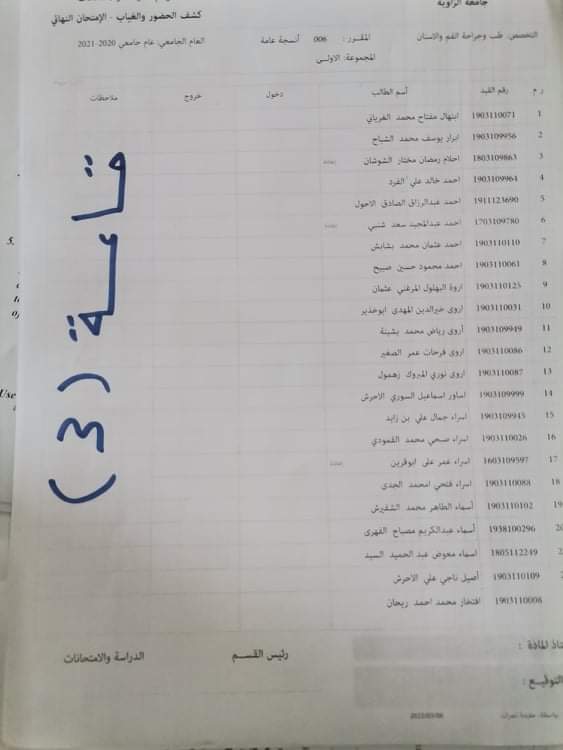 جامعة الزاوية
كشف الحضور والغياب - الإمتحان النهائي
التخصص: طب وجراحة الفم والاسنان المقرر : 006 أنسجة عامة العام الجامعي: عام جامعي 2020-2021
المجموعة: الاولى
ر م رقم القيد أسم الطالب دخول خروج ملاحظات
1 1903110071 ابتهال مفتاح محمد الغرياني
2 1903109956 ابرار يوسف محمد الشباح
3 1803109863 احلام رمضان مختار الشوشان إعادة
4 1903109964 احمد خالد علي القرد
5 1911123690 احمد عبدالرزاق الصادق الاحول
6 1703109780 احمد عبدالمجيد سعد شنبي إعادة
7 1903110110 احمد عثمان محمد بشابش
8 1903110061 احمد محمود حسين صبيح
9 1903110125 اروة البهلول المرغني عثمان
10 1903110031 اروى خيرالدين المهدى ابوخذير
11 1903109949 أروى رياض محمد بشينة
12 1903110086 اروى فرحات عمر الصغير
13 1903110087 اروى نوري المبروك زهمول
14 1903109999 اساور اسماعيل السوري الاحرش
15 1903109945 اسراء جمال علي بن زايد
16 1903110026 اسراء صبحي محمد القمودي
17 1603109597 اسراء عمر على ابوقرين إعادة
18 1903110088 اسراء فتحي امحمد الحدى
19 1903110102 أسماء الطاهر محمد الشقيرش
20 1938100296 أسماء عبدالكريم مصباح الفهرى
1805112249 اسماء معوض عبد الحميد السيد
1903110109 أصيل ناجي علي الاحرش
1903110006 افتخار محمد احمد ريحان
قاعة (3)
رئيس القسم الدراسة والامتحانات
تاذ المادة :
التوقيع :
2022/03/06
5.
Use